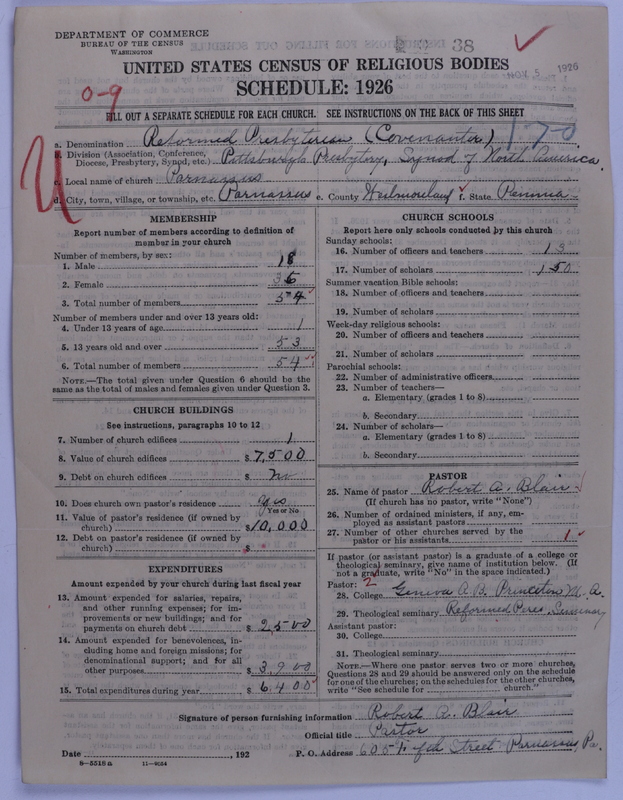 DEPARTMENT OF COMMERCE
BUREAU OF THE CENSUS
WASHINGTON
38
NOV. 5 1926
UNITED STATES CENSUS OF RELIGIOUS BODIES
SCHEDULE: 1926
0-9
FILL OUT A SEPARATE SCHEDULE FOR EACH CHURCH. SEE INSTRUCTIONS ON THE BACK OF THIS SHEET
170
a. Denomination Reformed Presbyterian (Covenanter)
b. Division (Association, Conference, Diocese, Presbytery, Synod, etc.) Pittsburgh Presbytery, Synod of North America.
c. Local name of church Parnassus
d. City, town, village, or township, etc. Parnassus e. County Westmoreland f. State Penna
MEMBERSHIP
Report number of members according to definition of
member in your church
Number of members, by sex:
1. Male 18
2. Female 36
3. Total number of members 54
Number of members under and over 13 years old:
4. Under 13 years of age 1
5. 13 years old and over 53
6. Total number of members 54
NOTE.—The total given under Question 6 should be the
same as the total of males and females given under Question 3.
CHURCH BUILDINGS
See instructions, paragraphs 10 to 12
7. Number of church edifices 1
8. Value of church edifices $ 7,500
9. Debt on church edifices $ No
10. Does church own pastor's residence Yes
Yes or No
11. Value of pastor's residence (if owned by
church) $ 10,000
12. Debt on pastor's residence (if owned by
church) $
EXPENDITURES
Amount expended by your church during last fiscal year
13. Amount expended for salaries, repairs,
and other running expenses; for im-
provements or new buildings; and for
payments on church debt $ 2500
14. Amount expended for benevolences, in-
cluding home and foreign missions; for
denominational support; and for all
other purposes $ 3900
15. Total expenditures during year $ 6400
CHURCH SCHOOLS
Report here only schools conducted by this church
Sunday schools:
16. Number of officers and teachers 13
17. Number of scholars 150
Summer vacation Bible schools:
18. Number of officers and teachers
19. Number of scholars
Week-day religious schools:
20. Number of officers and teachers
21. Number of scholars
Parochial schools:
22. Number of administrative officers
23. Number of teachers—
a. Elementary (grades 1 to 8)
b. Secondary
24. Number of scholars—
a. Elementary (grades 1 to 8)
b. Secondary
PASTOR
25. Name of pastor Robert A. Blair
(If church has no pastor, write "None")
26. Number of ordained ministers, if any, em-
ployed as assistant pastors
27. Number of other churches served by the
pastor or his assistants 1
If pastor (or assistant pastor) is a graduate of a college or
theological seminary, give name of institution below. (If
not a graduate, write "No" in the space indicated.)
Pastor: 2
28. College Geneva A.B. Princeton M.A.
29. Theological seminary Reformed Pres. Seminary
Assistant pastor:
30. College
31. Theological seminary
NOTE.—Where one pastor serves two or more churches,
Questions 28 and 29 should be answered only on the schedule
for one of the churches; on the schedules for the other churches,
write "See schedule for church."
Signature of person furnishing information Robert A. Blair
Official title Pastor
Date , 192 P. O. Address 600 Fifth Street Parnassus, Pa.
8-5518a 11-9034